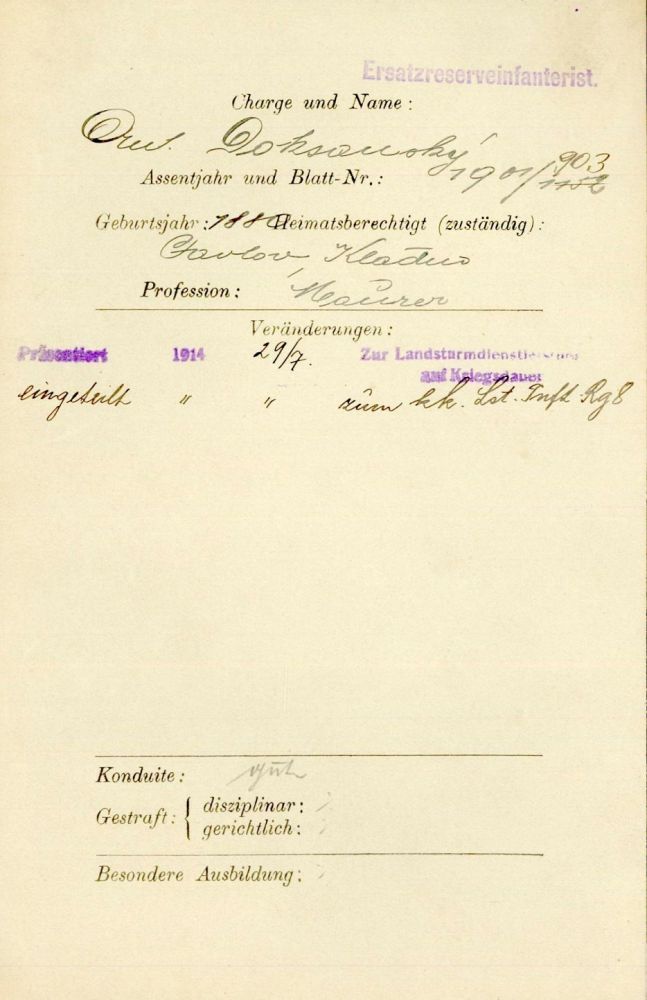 Ersatzreserveinfanterist.
Charge und Name:
Ant. Doksanský
Assentjahr und Blatt-Nr.: 1901/903 1152
Geburtsjahr: 1880 Heimatsberechtigt (zuständig):
Kladno
Profession: Maurer
Veränderungen:
Präsentiert 1914 29/7. Zur Landsturmdienstleistung
auf Kriegsdauer
eingeteilt " " zum kk. Lst. Inft. Rg 8
Konduite: gut
Gestraft: { disziplinar:
gerichtlich:
Besondere Ausbildung: